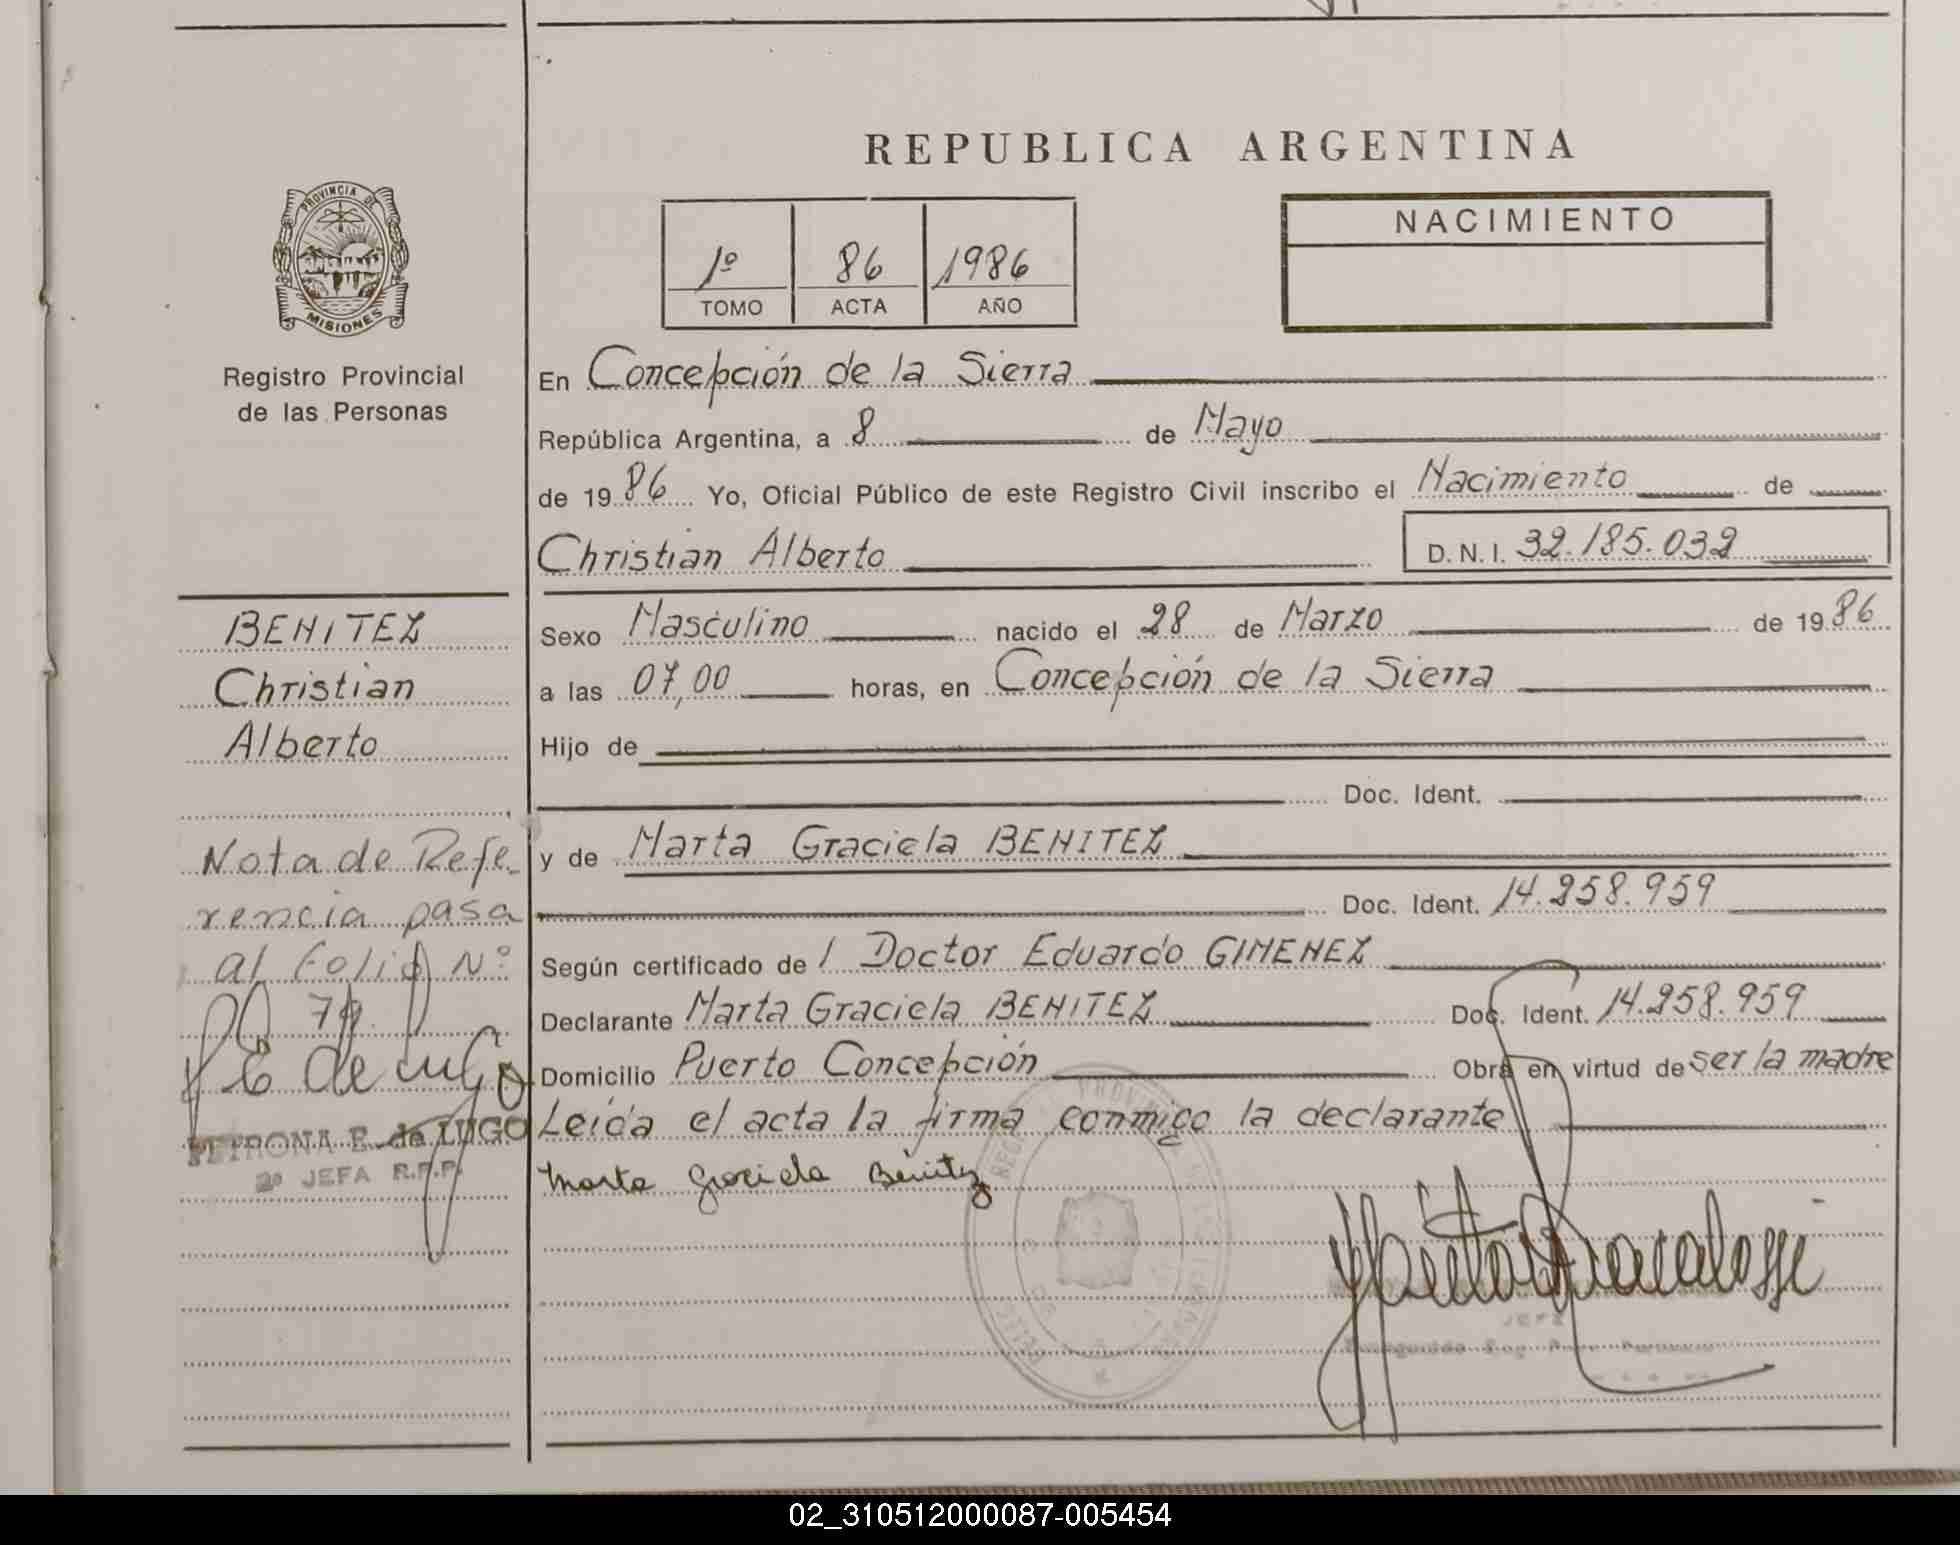 REPUBLICA ARGENTINA
PROVINCIA DE
MISIONES
Registro Provincial
de las Personas
1º 86 1986
TOMO ACTA AÑO
NACIMIENTO
En Concepción de la Sierra
República Argentina, a 8 de Mayo
de 1986 Yo, Oficial Público de este Registro Civil inscribo el Nacimiento de
Christian Alberto D.N.I. 32.185.032
Sexo Masculino nacido el 28 de Marzo de 1986
a las 07,00 horas, en Concepción de la Sierra
Hijo de
Doc. Ident.
y de Marta Graciela BENITEZ
Doc. Ident. 14.258.959
Según certificado de l Doctor Eduardo GIMENEZ
Declarante Marta Graciela BENITEZ Doc. Ident. 14.258.959
Domicilio Puerto Concepción Obra en virtud de ser la madre
Leída el acta la firma conmigo la declarante
Marta Graciela Benitez
BENITEZ
Christian
Alberto
Nota de Refe-
rencia pasa
al Folio Nº
79.
PETRONA E. de LUGO
2º JEFA R.P.P.
JEFE
02_310512000087-005454